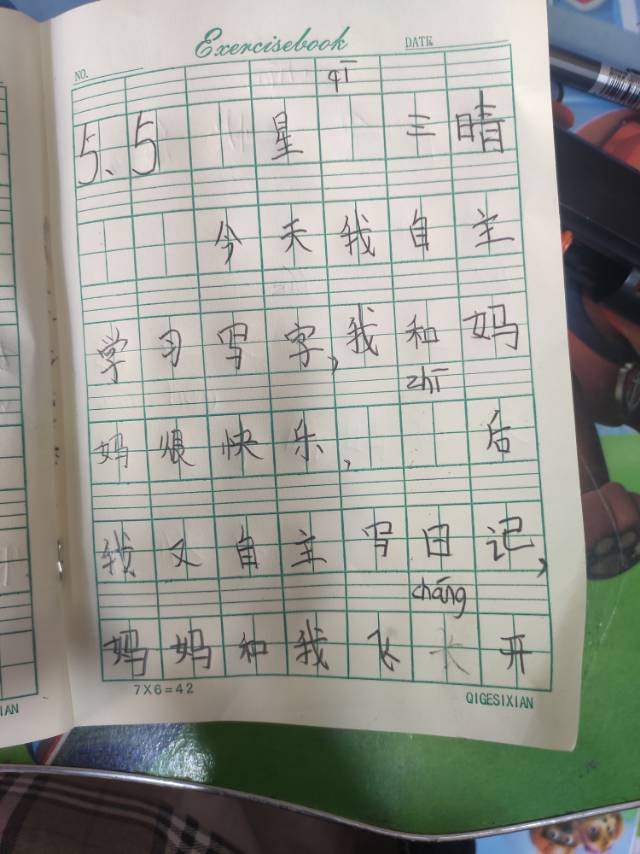 Exercisebook
NO. DATE
qī
5.5 星 三晴
今天我自主
学习写字,我和妈
zhī
妈很快乐, 后
我又自主写日记,
cháng
妈妈和我飞长开
7X6=42 QIGESIXIAN
IAN